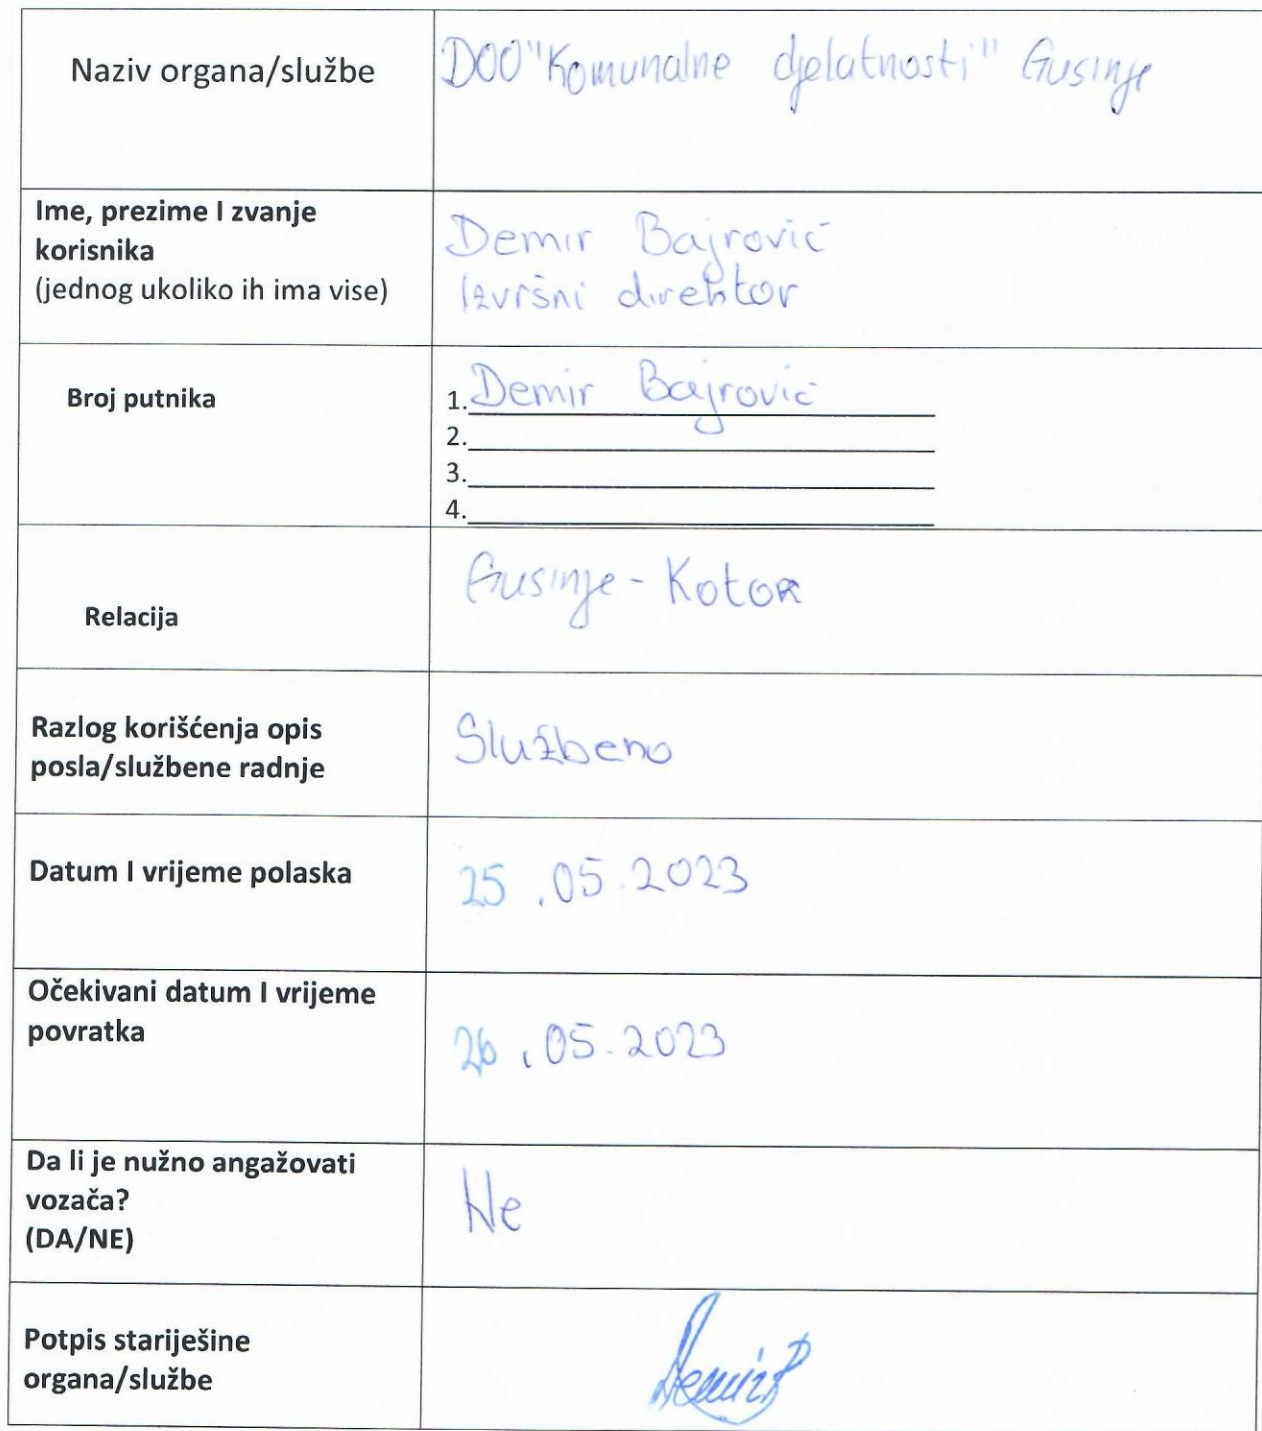 Naziv organa/službe
DOO "Komunalne djelatnosti" Gusinje
Ime, prezime I zvanje
korisnika
(jednog ukoliko ih ima vise)
Demir Bajrović
Izvršni direktor
Broj putnika
1. Demir Bajrović
2.
3.
4.
Relacija
Gusinje - Kotor
Razlog korišćenja opis
posla/službene radnje
Službeno
Datum I vrijeme polaska
25.05.2023
Očekivani datum I vrijeme
povratka
26.05.2023
Da li je nužno angažovati
vozača?
(DA/NE)
Ne
Potpis starješine
organa/službe
Demir B